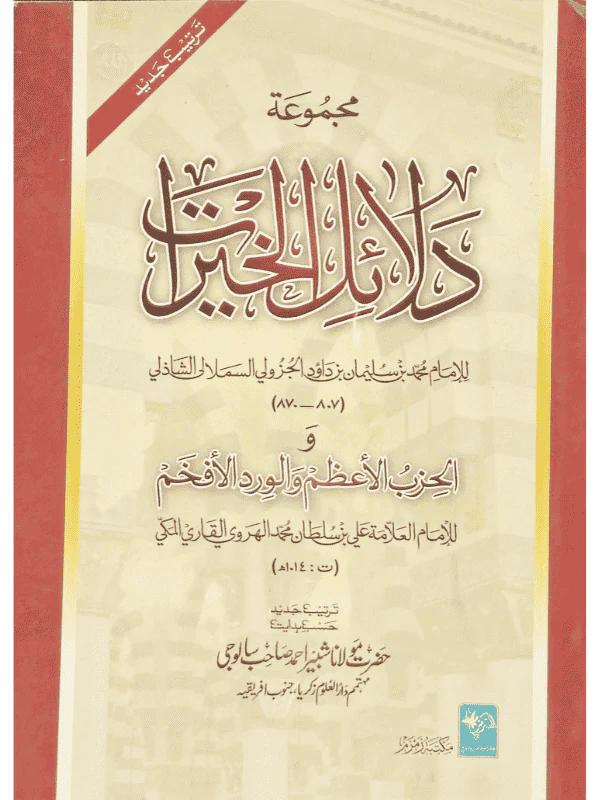 ترتیب جدید
مجموعة
دَلَائِلُ الخَيْرَات
للإمام محمد بن سليمان بن داؤد الجُزُولي السملالي الشاذلي
(٨٠٧ — ٨٧٠)
و
الحِزبُ الأَعظَم وَالوِرد الأَفخَم
للإمام العلامة علي بن سلطان محمد الهروي القاري المكي
(ت : ١٠١٤هـ)
ترتیب جدید
حسب ہدایت
حضرت مولانا شبیر احمد صاحب سالوجی
مہتمم دار العلوم زکریا، جنوب افریقیہ
مکتبہ زمزم
زمزم